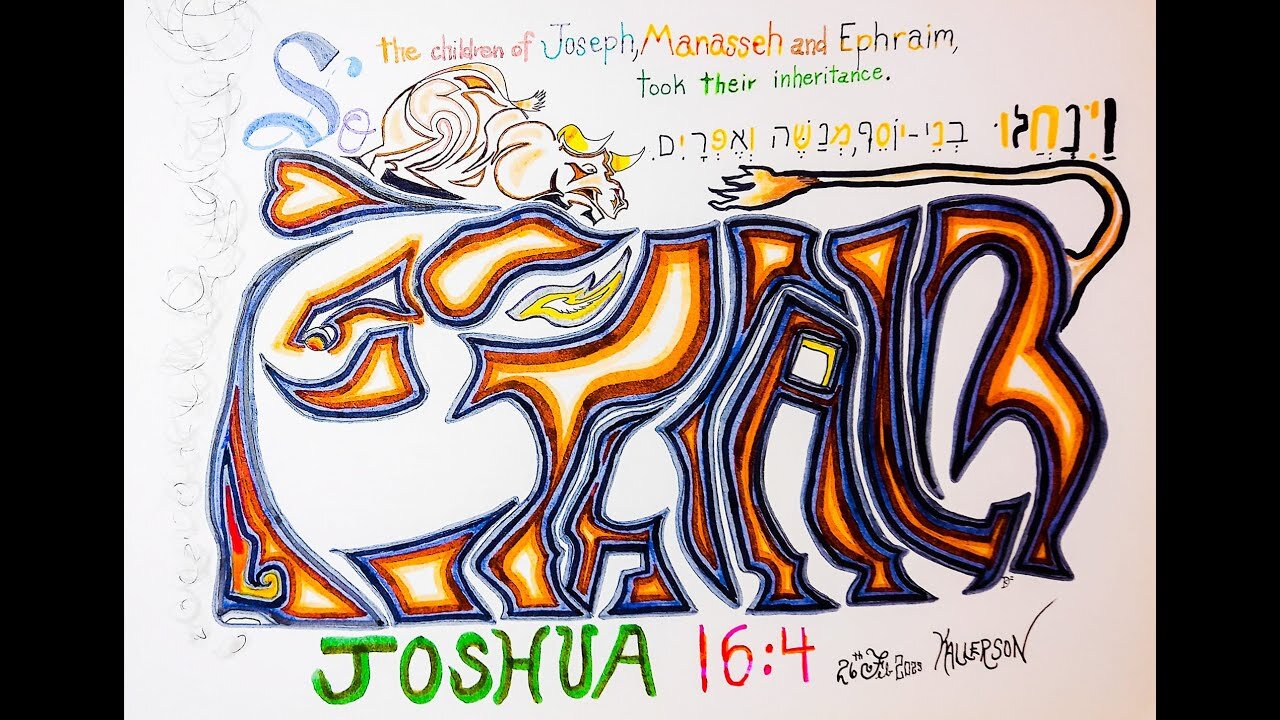 So the children of Joseph, Manasseh and Ephraim,
took their inheritance.
וַיִּנְחֲלוּ בְנֵי-יוֹסֵף, מְנַשֶּׁה וְאֶפְרָיִם.
JOSHUA 16:4
26th Feb 2023 KALLERSON